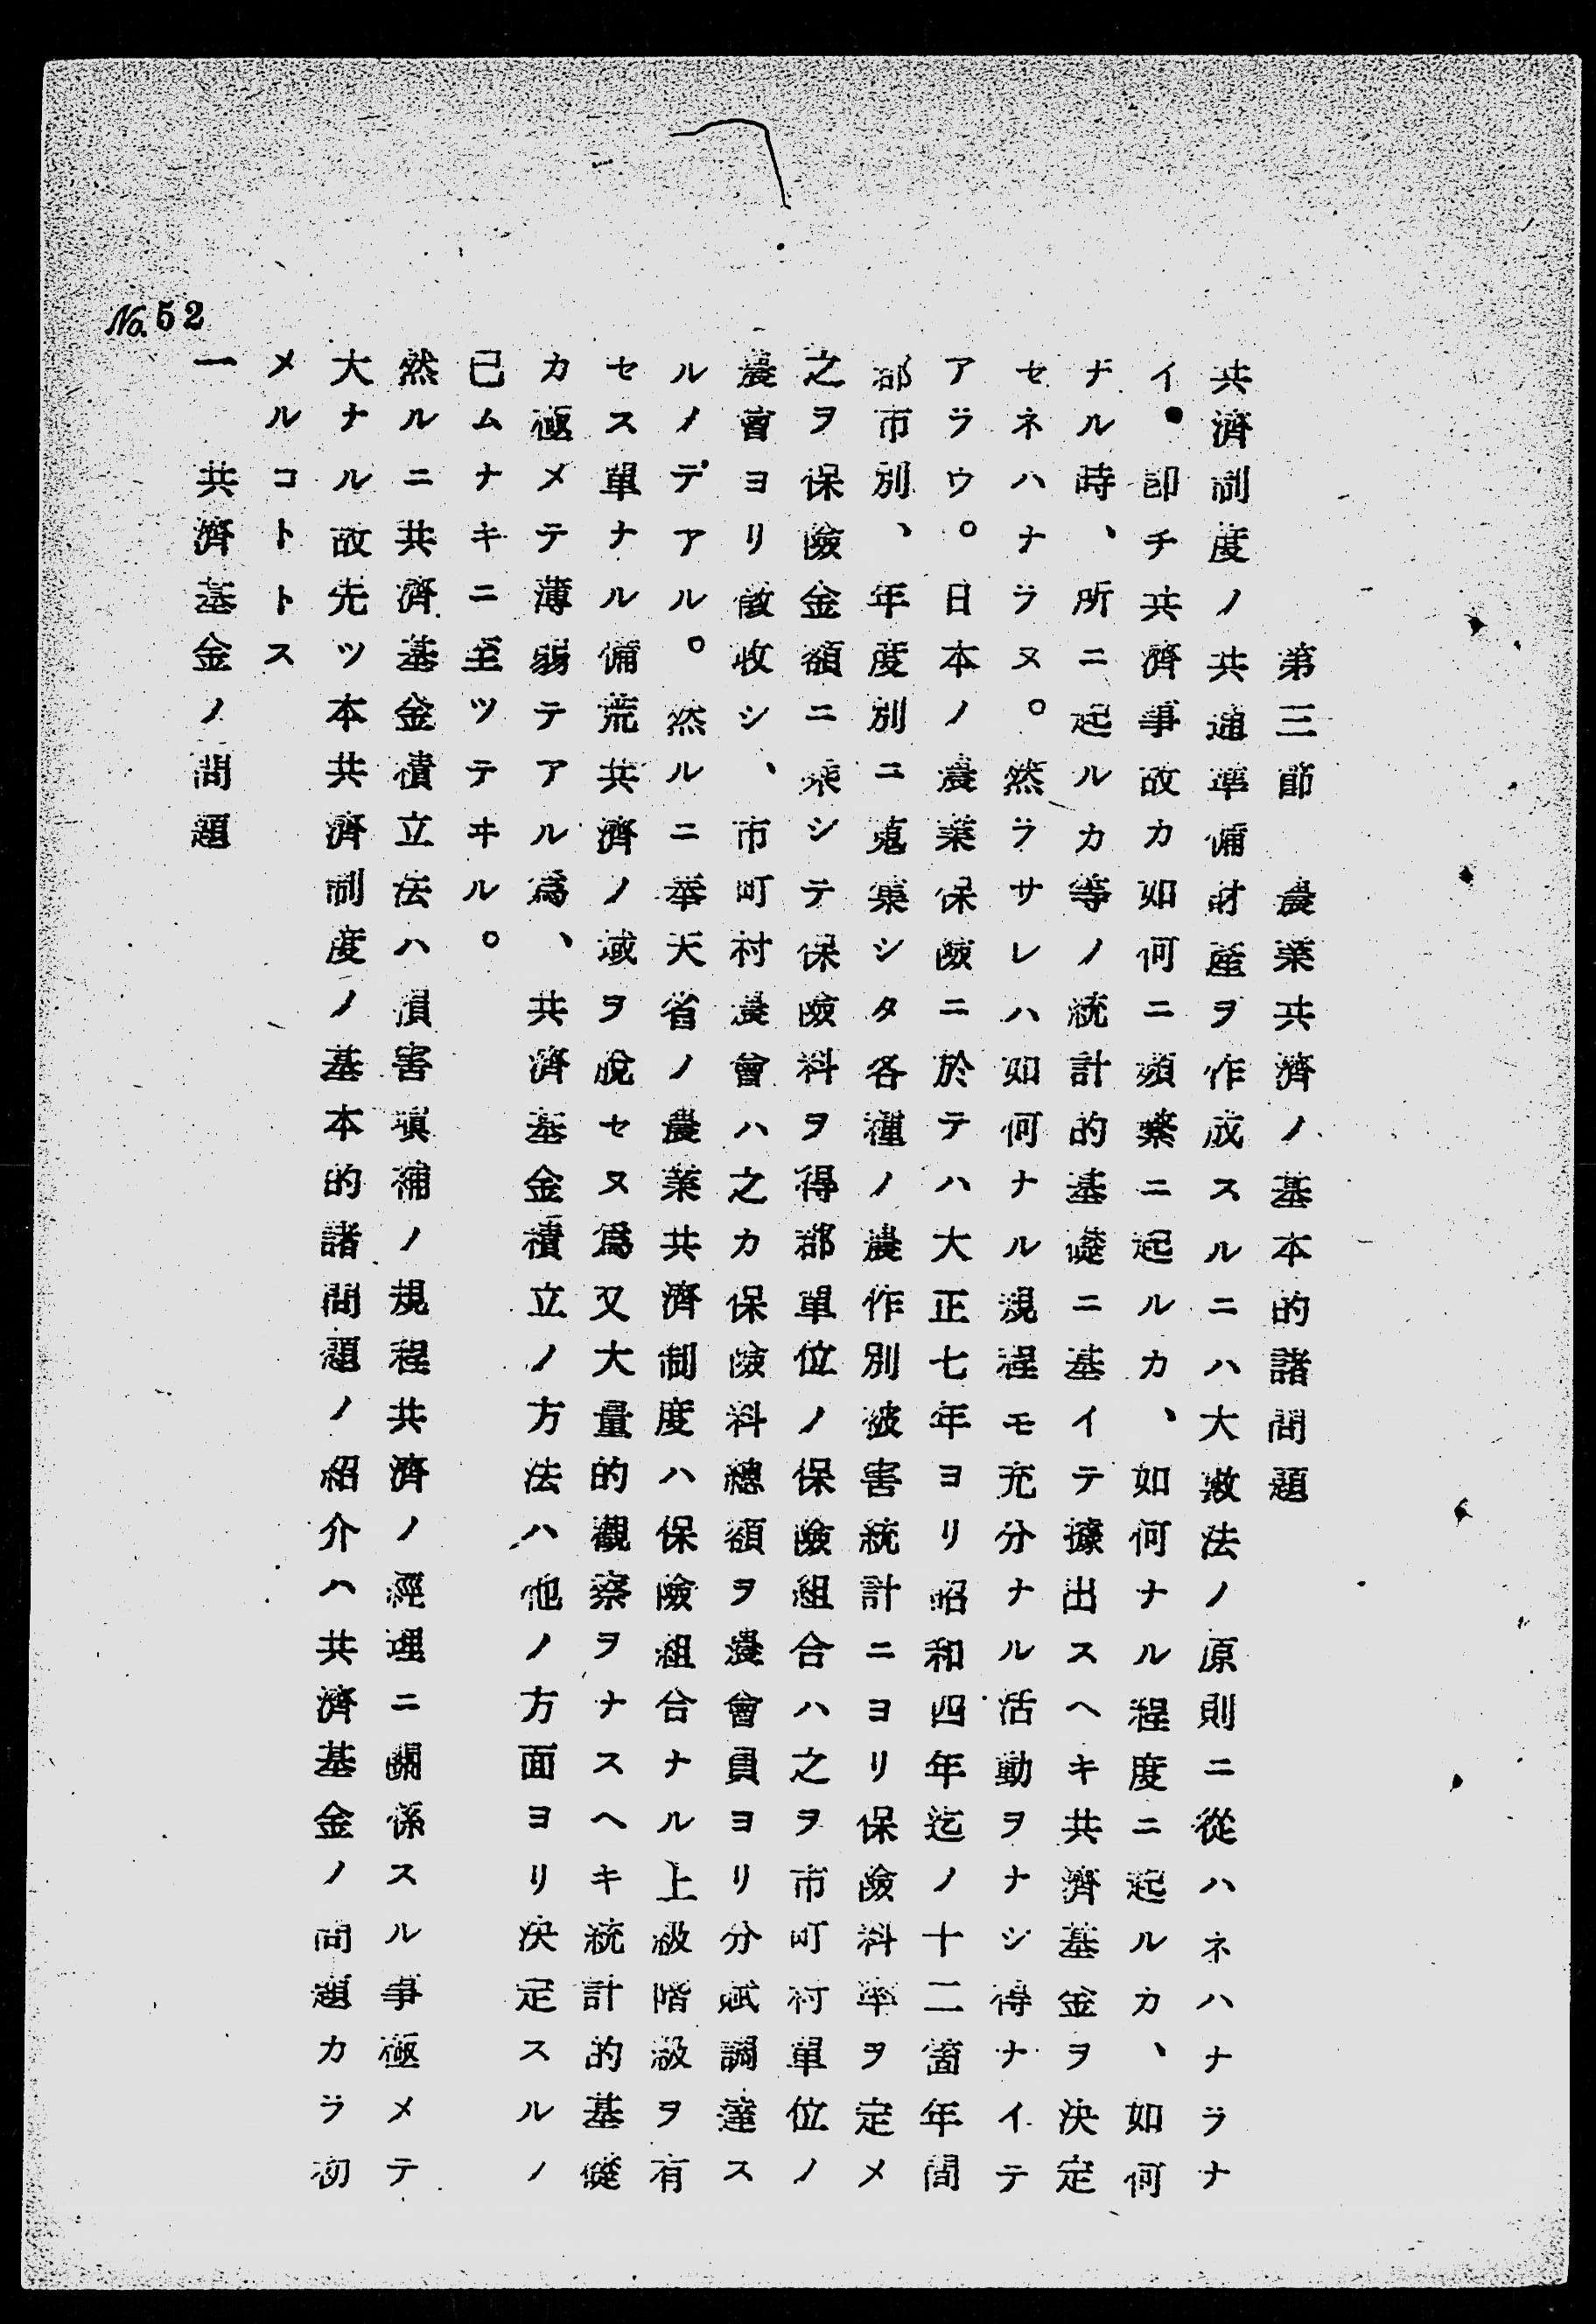 第三節　農業共濟ノ基本的諸問題
共濟制度ノ共通準備財產ヲ作成スルニハ大數法ノ原則ニ從ハネハナラナ
イ。卽チ共濟事故カ如何ニ頻繁ニ起ルカ、如何ナル程度ニ起ルカ、如何
ナル時、所ニ起ルカ等ノ統計的基礎ニ基イテ據出スヘキ共濟基金ヲ決定
セネハナラヌ。然ラサレハ如何ナル規程モ充分ナル活動ヲナシ得ナイテ
アラウ。日本ノ農業保險ニ於テハ大正七年ヨリ昭和四年迄ノ十二箇年間
郡市別、年度別ニ蒐集シタ各種ノ農作別被害統計ニヨリ保險料率ヲ定メ
之ヲ保險金額ニ乘シテ保險料ヲ得郡單位ノ保險組合ハ之ヲ市町村單位ノ
農會ヨリ徵收シ、市町村農會ハ之カ保險料總額ヲ農會員ヨリ分賦調達ス
ルノデアル。然ルニ奉天省ノ農業共濟制度ハ保險組合ナル上級階級ヲ有
セス單ナル備荒共濟ノ域ヲ脫セヌ爲又大量的觀察ヲナスヘキ統計的基礎
カ極メテ薄弱テアル爲、共濟基金積立ノ方法ハ他ノ方面ヨリ決定スルノ
已ムナキニ至ツテヰル。
然ルニ共濟基金積立法ハ損害塡補ノ規程共濟ノ經理ニ關係スル事極メテ
大ナル故先ツ本共濟制度ノ基本的諸問題ノ紹介ハ共濟基金ノ問題カラ初
メルコトトス
一　共濟基金ノ問題
No.52